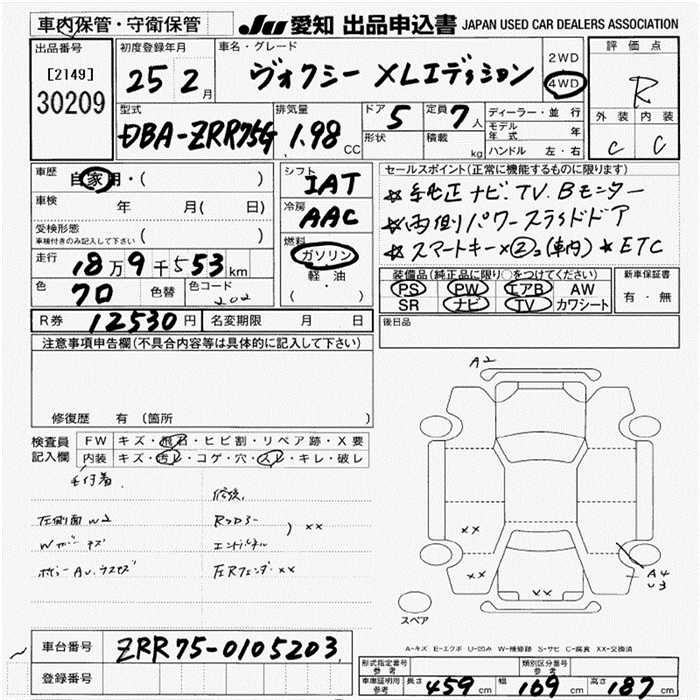 車内保管・守衛保管
JU 愛知 出品申込書 JAPAN USED CAR DEALERS ASSOCIATION
出品番号
[2149]
30209
初度登録年月
25 2月
車名・グレード
ヴォクシー XLエディション
2WD
4WD
評価点
R
外装 内装
C C
型式
DBA-ZRR75G
排気量
1.98 CC
ドア 5
形状
定員 7人
積載 kg
ディーラー・並行
モデル年式 年
ハンドル 左・右
車歴
自家用・( )
車検 年 月( 日)
受検形態
車検付きのみ記入して下さい ( )
走行
18万9千553km
色
クロ
色替
色コード
202
シフト
IAT
冷房
AAC
燃料
ガソリン
軽・油
( ・ )
セールスポイント(正常に機能するものに限ります)
☆純正ナビ.TV.Bモニター
☆両側パワースライドドア
☆スマートキー×②(車内) ★ETC
装備品(純正品に限り○をつけてください)
PS PW エアB AW
SR ナビ TV カワシート
新車保証書
有・無
R券 12530円
名変期限 月 日
後日品
注意事項申告欄(不具合内容等は具体的に記入して下さい)
修復歴 有(箇所 )
検査員記入欄
FW キズ・飛石・ヒビ割・リペア跡・X要
内装 キズ・汚レ・コゲ・穴・スレ・キレ・破レ
毛付着.
左側面W2
修後,
エンドパネル ) ××
左Rフェンダー××
A2
××
××
××
A4
U3
スペア
A-キズ E-エクボ U-凹み W-補修跡 S-サビ C-腐食 XX-交換済
車台番号
ZRR75-0105203
登録番号
形式指定番号 参考
類別区分番号 参考
車庫証明用 参考 長さ 459cm 幅 169cm 高さ 187cm